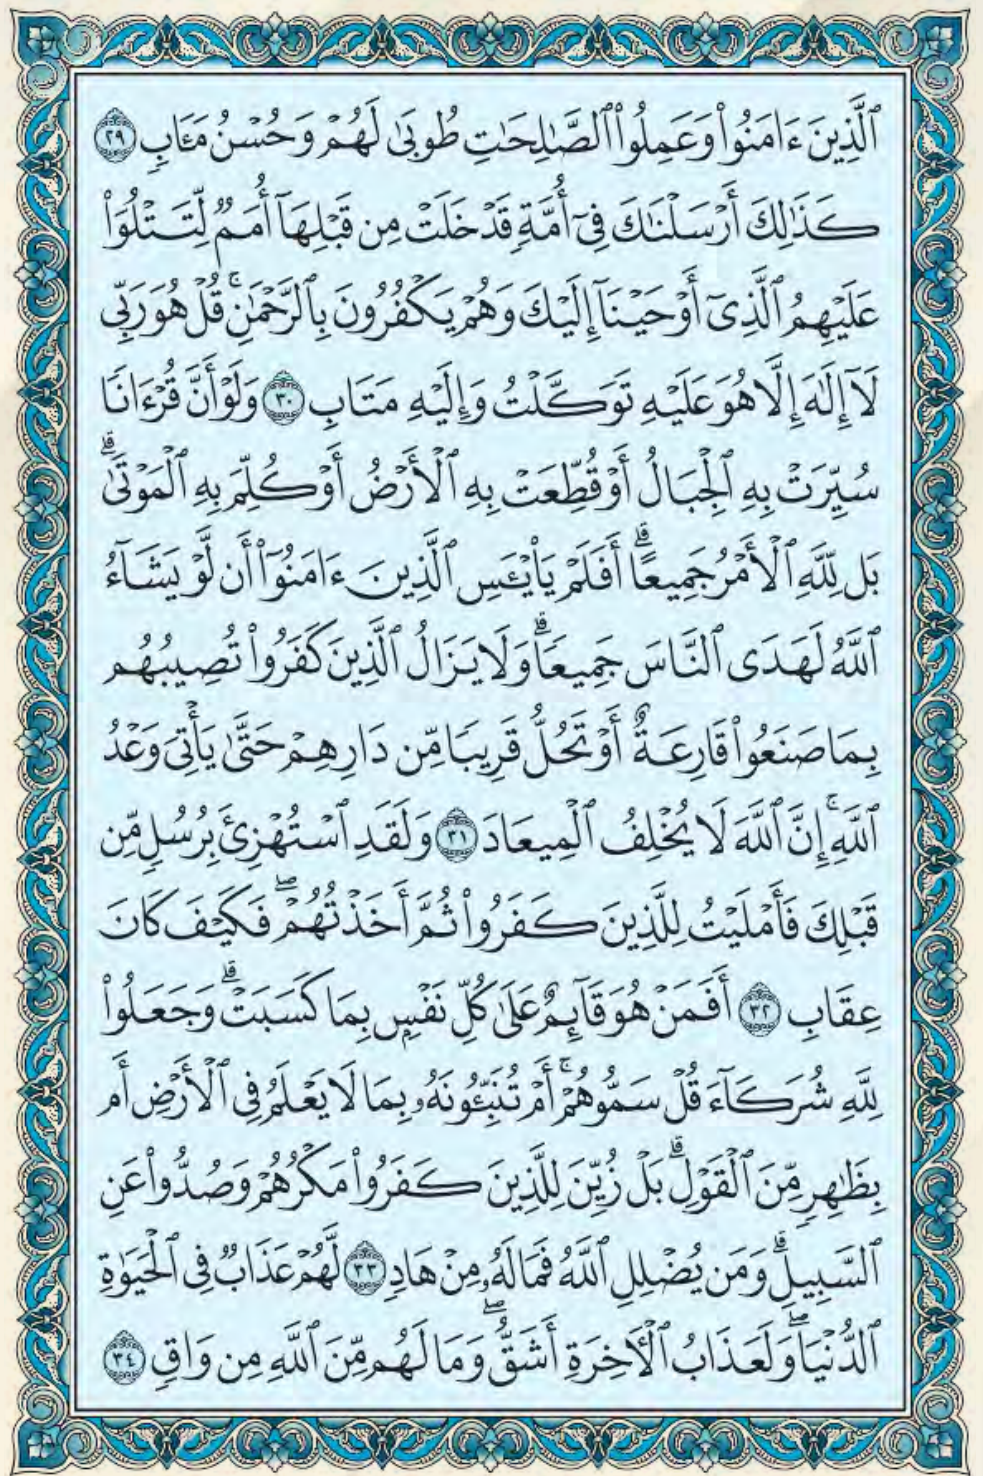 ٱلَّذِينَ ءَامَنُوا۟ وَعَمِلُوا۟ ٱلصَّٰلِحَٰتِ طُوبَىٰ لَهُمْ وَحُسْنُ مَـَٔابٍ ٢٩
كَذَٰلِكَ أَرْسَلْنَٰكَ فِىٓ أُمَّةٍ قَدْ خَلَتْ مِن قَبْلِهَآ أُمَمٌ لِّتَتْلُوَا۟
عَلَيْهِمُ ٱلَّذِىٓ أَوْحَيْنَآ إِلَيْكَ وَهُمْ يَكْفُرُونَ بِٱلرَّحْمَٰنِ ۚ قُلْ هُوَ رَبِّى
لَآ إِلَٰهَ إِلَّا هُوَ عَلَيْهِ تَوَكَّلْتُ وَإِلَيْهِ مَتَابِ ٣٠ وَلَوْ أَنَّ قُرْءَانًا
سُيِّرَتْ بِهِ ٱلْجِبَالُ أَوْ قُطِّعَتْ بِهِ ٱلْأَرْضُ أَوْ كُلِّمَ بِهِ ٱلْمَوْتَىٰ ۗ
بَل لِّلَّهِ ٱلْأَمْرُ جَمِيعًا ۗ أَفَلَمْ يَا۟يْـَٔسِ ٱلَّذِينَ ءَامَنُوٓا۟ أَن لَّوْ يَشَآءُ
ٱللَّهُ لَهَدَى ٱلنَّاسَ جَمِيعًا ۗ وَلَا يَزَالُ ٱلَّذِينَ كَفَرُوا۟ تُصِيبُهُم
بِمَا صَنَعُوا۟ قَارِعَةٌ أَوْ تَحُلُّ قَرِيبًا مِّن دَارِهِمْ حَتَّىٰ يَأْتِىَ وَعْدُ
ٱللَّهِ ۚ إِنَّ ٱللَّهَ لَا يُخْلِفُ ٱلْمِيعَادَ ٣١ وَلَقَدِ ٱسْتُهْزِئَ بِرُسُلٍ مِّن
قَبْلِكَ فَأَمْلَيْتُ لِلَّذِينَ كَفَرُوا۟ ثُمَّ أَخَذْتُهُمْ ۖ فَكَيْفَ كَانَ
عِقَابِ ٣٢ أَفَمَنْ هُوَ قَآئِمٌ عَلَىٰ كُلِّ نَفْسٍۭ بِمَا كَسَبَتْ ۗ وَجَعَلُوا۟
لِلَّهِ شُرَكَآءَ قُلْ سَمُّوهُمْ ۚ أَمْ تُنَبِّـُٔونَهُۥ بِمَا لَا يَعْلَمُ فِى ٱلْأَرْضِ أَم
بِظَٰهِرٍ مِّنَ ٱلْقَوْلِ ۗ بَلْ زُيِّنَ لِلَّذِينَ كَفَرُوا۟ مَكْرُهُمْ وَصُدُّوا۟ عَنِ
ٱلسَّبِيلِ ۗ وَمَن يُضْلِلِ ٱللَّهُ فَمَا لَهُۥ مِنْ هَادٍ ٣٣ لَّهُمْ عَذَابٌ فِى ٱلْحَيَوٰةِ
ٱلدُّنْيَا ۖ وَلَعَذَابُ ٱلْـَٔاخِرَةِ أَشَقُّ ۖ وَمَا لَهُم مِّنَ ٱللَّهِ مِن وَاقٍ ٣٤